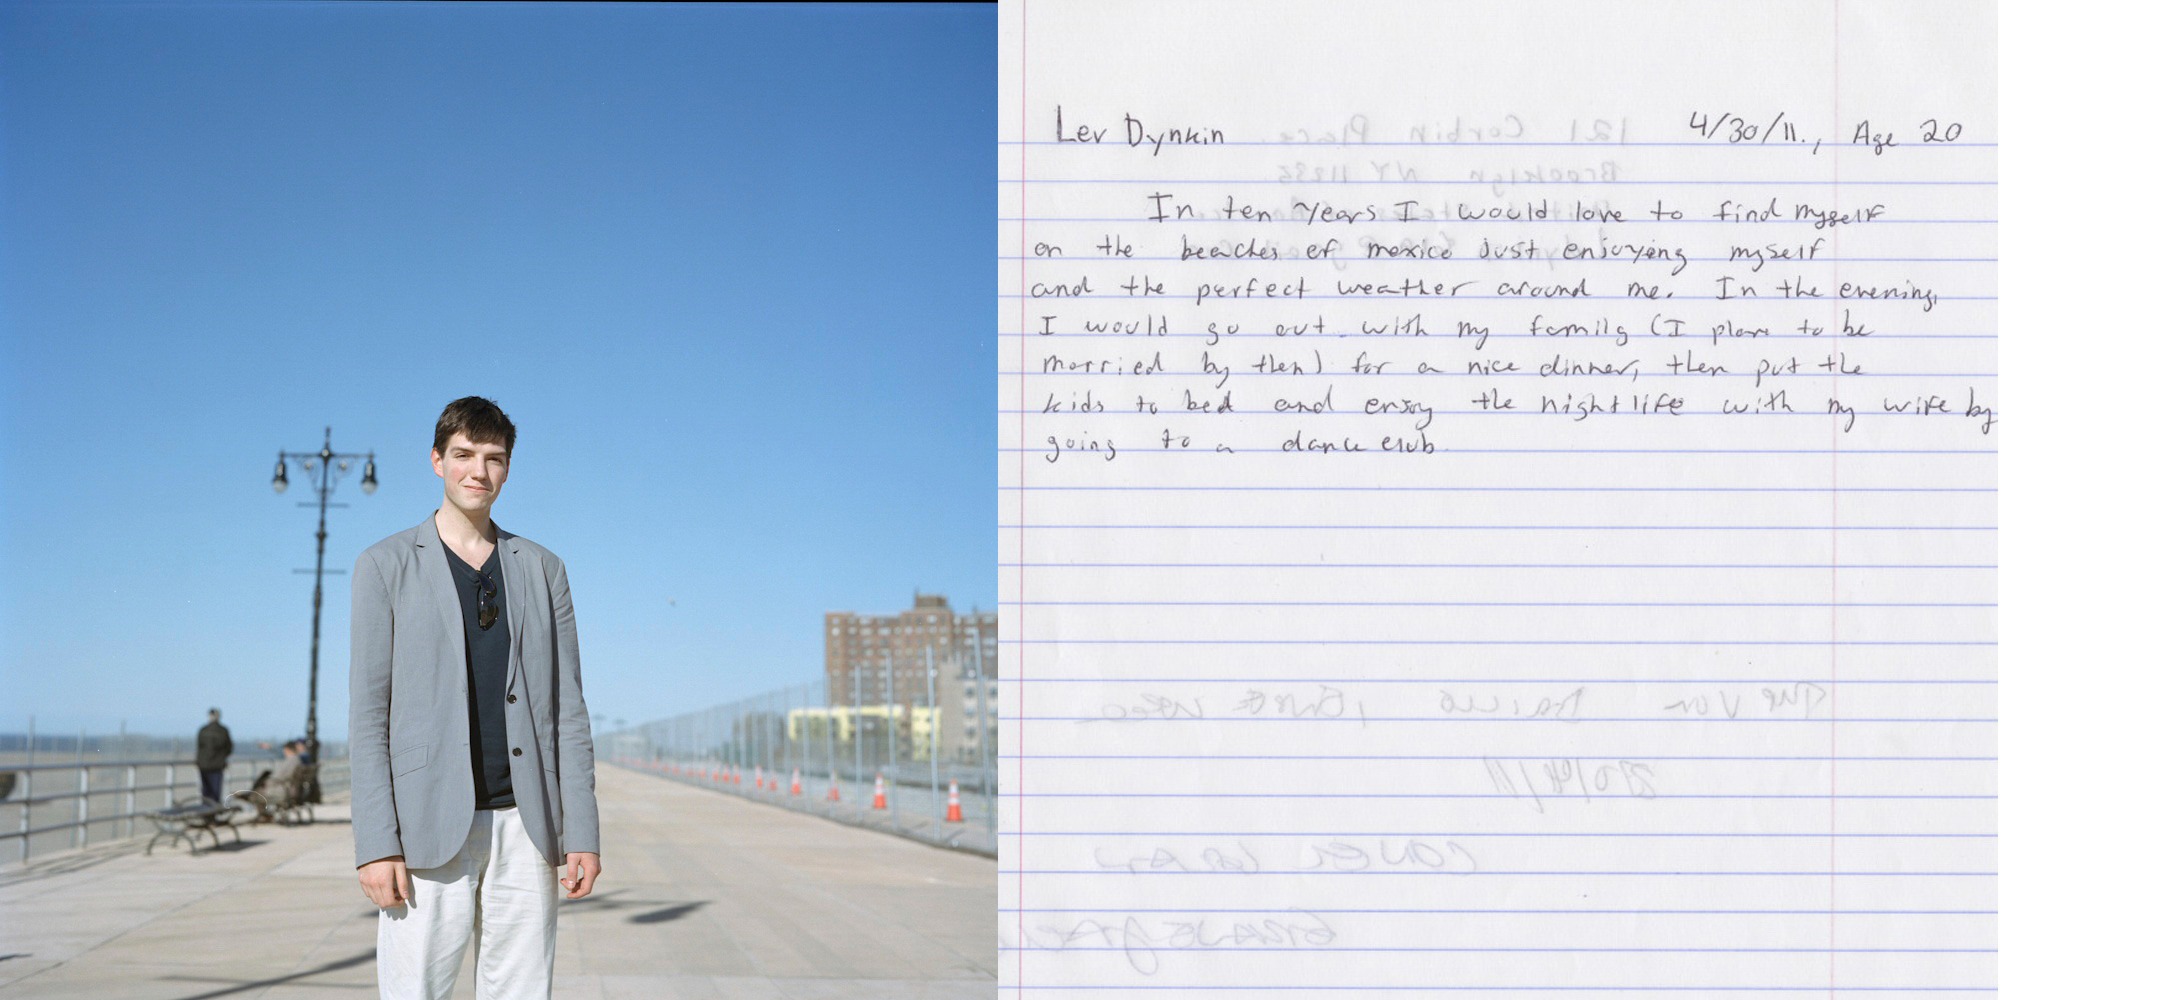 Lev Dynkin 4/30/11., Age 20
In ten years I would love to find myself
on the beaches of mexico just enjoying myself
and the perfect weather around me. In the evening,
I would go out with my family (I plan to be
married by then) for a nice dinner, then put the
kids to bed and enjoy the nightlife with my wife by
going to a dance club.
121 Corbin Place
Brooklyn NY 11235